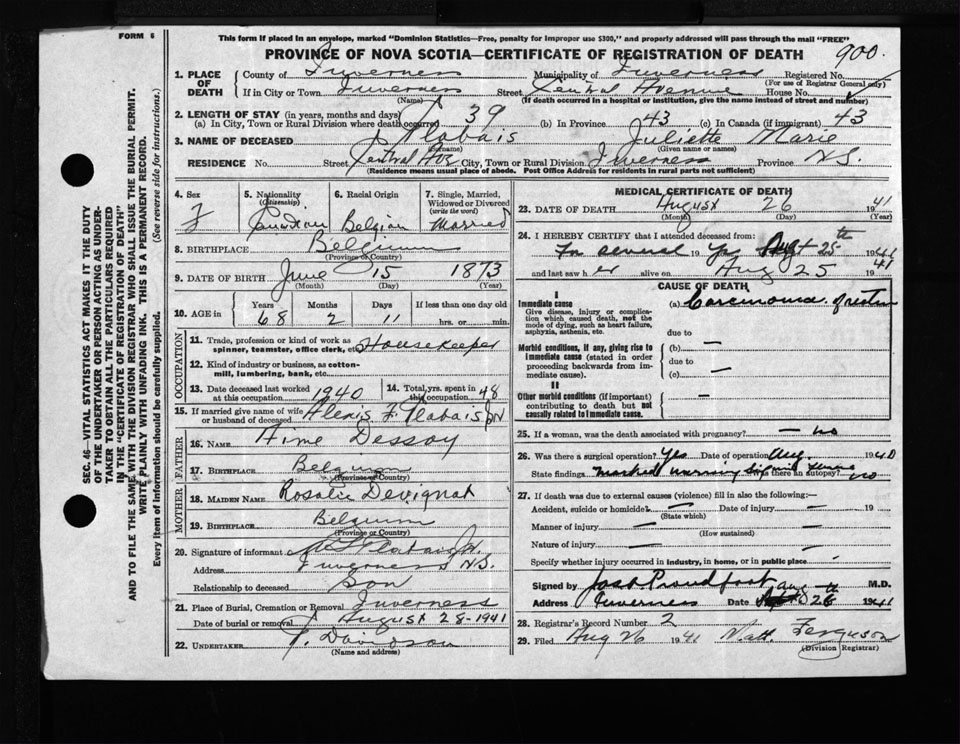 FORM 6
This form if placed in an envelope, marked "Dominion Statistics—Free, penalty for improper use $300," and properly addressed will pass through the mail "FREE"
PROVINCE OF NOVA SCOTIA—CERTIFICATE OF REGISTRATION OF DEATH
900
1. PLACE OF DEATH County of Inverness Municipality of Inverness Registered No.
(For use of Registrar General only)
If in City or Town Inverness Street Central Avenue House No.
(Name) (If death occurred in a hospital or institution, give the name instead of street and number)
2. LENGTH OF STAY (in years, months and days)
(a) In City, Town or Rural Division where death occurred 39 (b) In Province 43 (c) In Canada (if immigrant) 43
3. NAME OF DECEASED Plabais Juliette Marie
(Surname) (Given name or names)
RESIDENCE No. Street Central Ave City, Town or Rural Division Inverness Province N.S.
(Residence means usual place of abode. Post Office Address for residents in rural parts not sufficient)
SEC. 46—VITAL STATISTICS ACT MAKES IT THE DUTY
OF THE UNDERTAKER OR PERSON ACTING AS UNDER-
TAKER TO OBTAIN ALL THE PARTICULARS REQUIRED
IN THE "CERTIFICATE OF REGISTRATION OF DEATH"
AND TO FILE THE SAME WITH THE DIVISION REGISTRAR WHO SHALL ISSUE THE BURIAL PERMIT.
WRITE PLAINLY WITH UNFADING INK. THIS IS A PERMANENT RECORD.
Every item of Information should be carefully supplied. (See reverse side for instructions.)
4. Sex F
5. Nationality (Citizenship) Canadian
6. Racial Origin Belgian
7. Single, Married, Widowed or Divorced (write the word) Married
8. BIRTHPLACE Belgium
(Province or Country)
9. DATE OF BIRTH June 15 1873
(Month) (Day) (Year)
10. AGE in Years 68 Months 2 Days 11 If less than one day old hrs. or min.
OCCUPATION
11. Trade, profession or kind of work as spinner, teamster, office clerk, etc. Housekeeper
12. Kind of industry or business, as cotton-mill, lumbering, bank, etc.
13. Date deceased last worked at this occupation 1940
14. Total yrs. spent in this occupation 48
15. If married give name of wife or husband of deceased Alexis F. Plabais
FATHER
16. NAME Aime Dessoy
17. BIRTHPLACE Belgium
(Province or Country)
MOTHER
18. MAIDEN NAME Rosalie Devignat
19. BIRTHPLACE Belgium
(Province or Country)
20. Signature of informant Plabais
Address Inverness N.S.
Relationship to deceased Son
21. Place of Burial, Cremation or Removal Inverness
Date of burial or removal August 28-1941
22. UNDERTAKER Davidson
(Name and address)
MEDICAL CERTIFICATE OF DEATH
23. DATE OF DEATH August 26 1941
(Month) (Day) (Year)
24. I HEREBY CERTIFY that I attended deceased from:
For several 19 yrs Aug 25th 1941
and last saw her alive on Aug 25 1941
CAUSE OF DEATH
I
Immediate cause (a) Carcinoma of rectum
Give disease, injury or complication which caused death, not the mode of dying, such as heart failure, asphyxia, asthenia, etc.
due to
Morbid conditions, if any, giving rise to immediate cause (stated in order proceeding backwards from immediate cause). (b) —
due to
(c) —
II
Other morbid conditions (if important) contributing to death but not causally related to immediate cause. —
25. If a woman, was the death associated with pregnancy? — no
26. Was there a surgical operation? Yes Date of operation Aug. 1940
State findings Marked Was there an autopsy? no
27. If death was due to external causes (violence) fill in also the following:—
Accident, suicide or homicide — Date of injury — 19
(State which)
Manner of injury — (How sustained)
Nature of injury —
Specify whether injury occurred in industry, in home, or in public place —
Signed by Jas. Proudfoot M.D.
Address Inverness Date Aug 26th 1941
28. Registrar's Record Number 2
29. Filed Aug 26 1941 Ferguson
(Division Registrar)